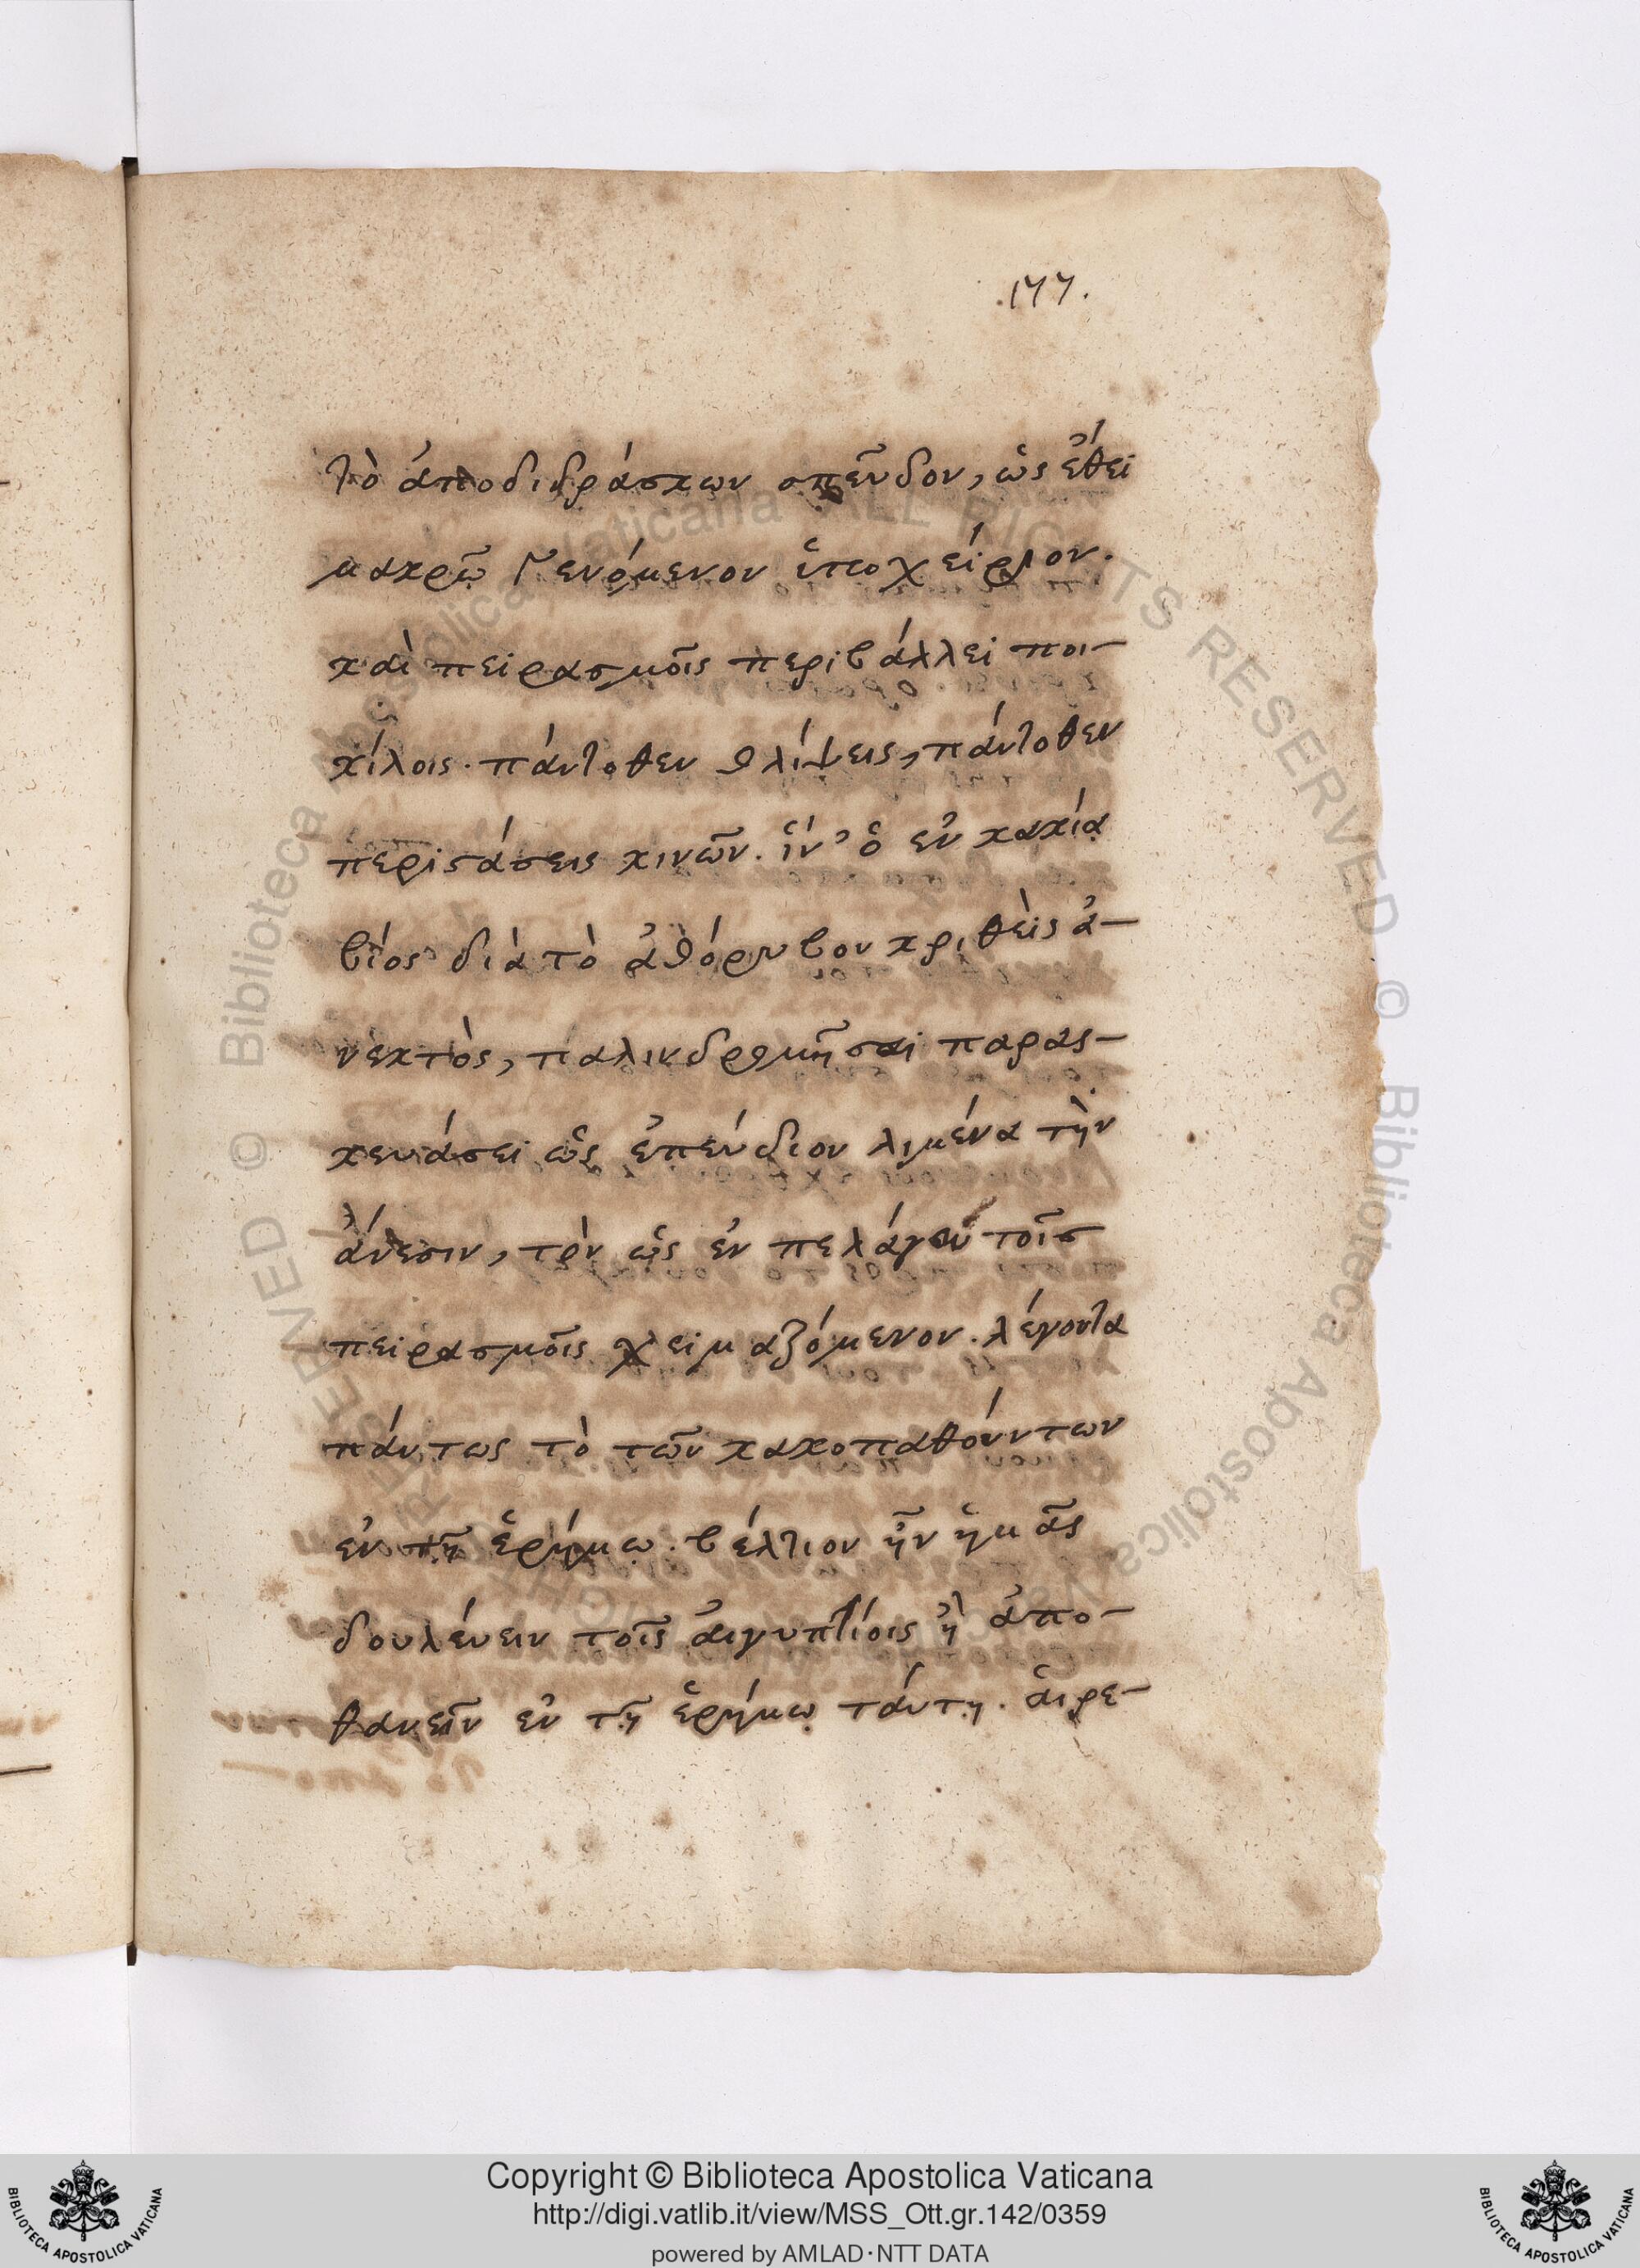 .177.
τὸ ἀποδιδράσκων σπεῦδον, ὡς ἔθει
μακρῷ γενόμενον ὑποχείριον.
καὶ πειρασμοῖς περιβάλλει ποι-
κίλοις. πάντοθεν θλίψεις, πάντοθεν
περιστάσεις κινῶν. ἵν' ὁ ἐν κακίᾳ
βίος διὰ τὸ ἀθόρυβον κριθεὶς ἀ-
νεκτὸς, παλινδρομῆσαι παρασ-
κευάσει ὡς ἐπεύδιον λιμένα τὴν
ἄνεσιν, τὸν ὡς ἐν πελάγει τοῖς
πειρασμοῖς χειμαζόμενον. λέγοντα
πάντως τὸ τῶν κακοπαθούντων
ἐν τῇ ἐρήμῳ. βέλτιον ἦν ἡμᾶς
δουλεύειν τοῖς ἀιγυπτίοις ἢ ἀπο-
θανεῖν ἐν τῇ ἐρήμῳ τάυτῃ. ἁιρε-
Biblioteca Apostolica Vaticana ALL RIGHTS RESERVED ©
Copyright © Biblioteca Apostolica Vaticana
http://digi.vatlib.it/view/MSS_Ott.gr.142/0359
powered by AMLAD·NTT DATA
BIBLIOTECA APOSTOLICA VATICANA
BIBLIOTECA APOSTOLICA VATICANA